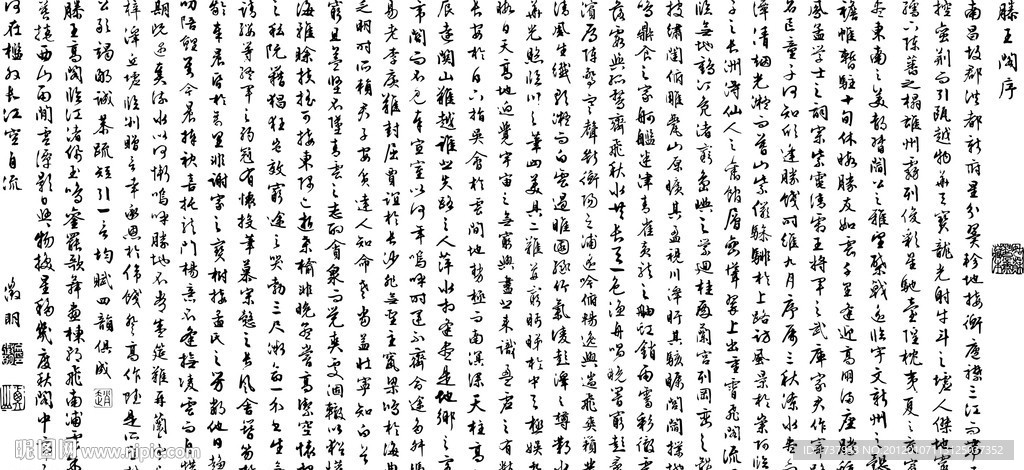 滕王閣序
南昌故郡洪都新府星分翼軫地接衡廬襟三江而
控蠻荊而引甌越物華天寶龍光射牛斗之墟人傑地
孺下陳蕃之榻雄州霧列俊彩星馳臺隍枕夷夏之交
盡東南之美都督閻公之雅望棨戟遙臨宇文新州之懿
襜帷暫駐十旬休暇勝友如雲千里逢迎高朋滿座騰
鳳孟學士之詞宗紫電清霜王將軍之武庫家君作宰
名區童子何知躬逢勝餞時維九月序屬三秋潦水盡
潭清烟光凝而暮山紫儼驂騑於上路訪風景於崇阿臨
子之長洲得仙人之舊館層巒聳翠上出重霄飛閣流
臨無地鶴汀鳧渚窮島嶼之縈迴桂殿蘭宮列岡巒之
披繡闥俯雕甍山原曠其盈視川澤盱其駭矚閭閻撲
鳴鼎食之家舸艦迷津青雀黃龍之舳虹銷雨霽彩徹雲
落霞與孤鶩齊飛秋水共長天一色漁舟唱晚響窮彭蠡
濱雁陣驚寒聲斷衡陽之浦遙吟俯暢逸興遄飛爽籟發
清風生纖歌凝而白雲遏睢園綠竹氣凌彭澤之樽鄴水
華光照臨川之筆四美具二難并窮睇眄於中天極娛
暇日天高地迥覺宇宙之無窮興盡悲來識盈虛之有數
長安於日下指吳會於雲間地勢極而南溟深天柱高
辰遠關山難越誰悲失路之人萍水相逢盡是他鄉之
帝閽而不見奉宣室以何年嗚呼時運不齊命途多舛
易老李廣難封屈賈誼於長沙非無聖主竄梁鴻於海曲
乏明時所賴君子安貧達人知命老當益壯寧知白首
窮且益堅不墜青雲之志酌貪泉而覺爽處涸轍以猶
海雖賒扶搖可接東隅已逝桑榆非晚孟嘗高潔空懷
之私阮籍猖狂豈效窮途之哭勃三尺微命一介書生
請纓等終軍之弱冠有懷投筆慕宗慤之長風舍簪笏
齡奉晨昏於萬里非謝家之寶樹接孟氏之芳鄰他日趨
叨陪鯉對今晨捧袂喜托龍門楊意不逢撫凌雲而自
期既遇奏流水以何慚嗚呼勝地不常盛筵難再蘭
梓澤丘墟臨別贈言幸承恩於偉餞登高作賦是所
公敢竭鄙誠恭疏短引一言均賦四韻俱成
滕王高閣臨江渚佩玉鳴鑾罷歌舞畫棟朝飛南浦雲
暮捲西山雨閒雲潭影日悠悠物換星移幾度秋閣中
何在檻外長江空自流 徵明
昵图网 www.nipic.com